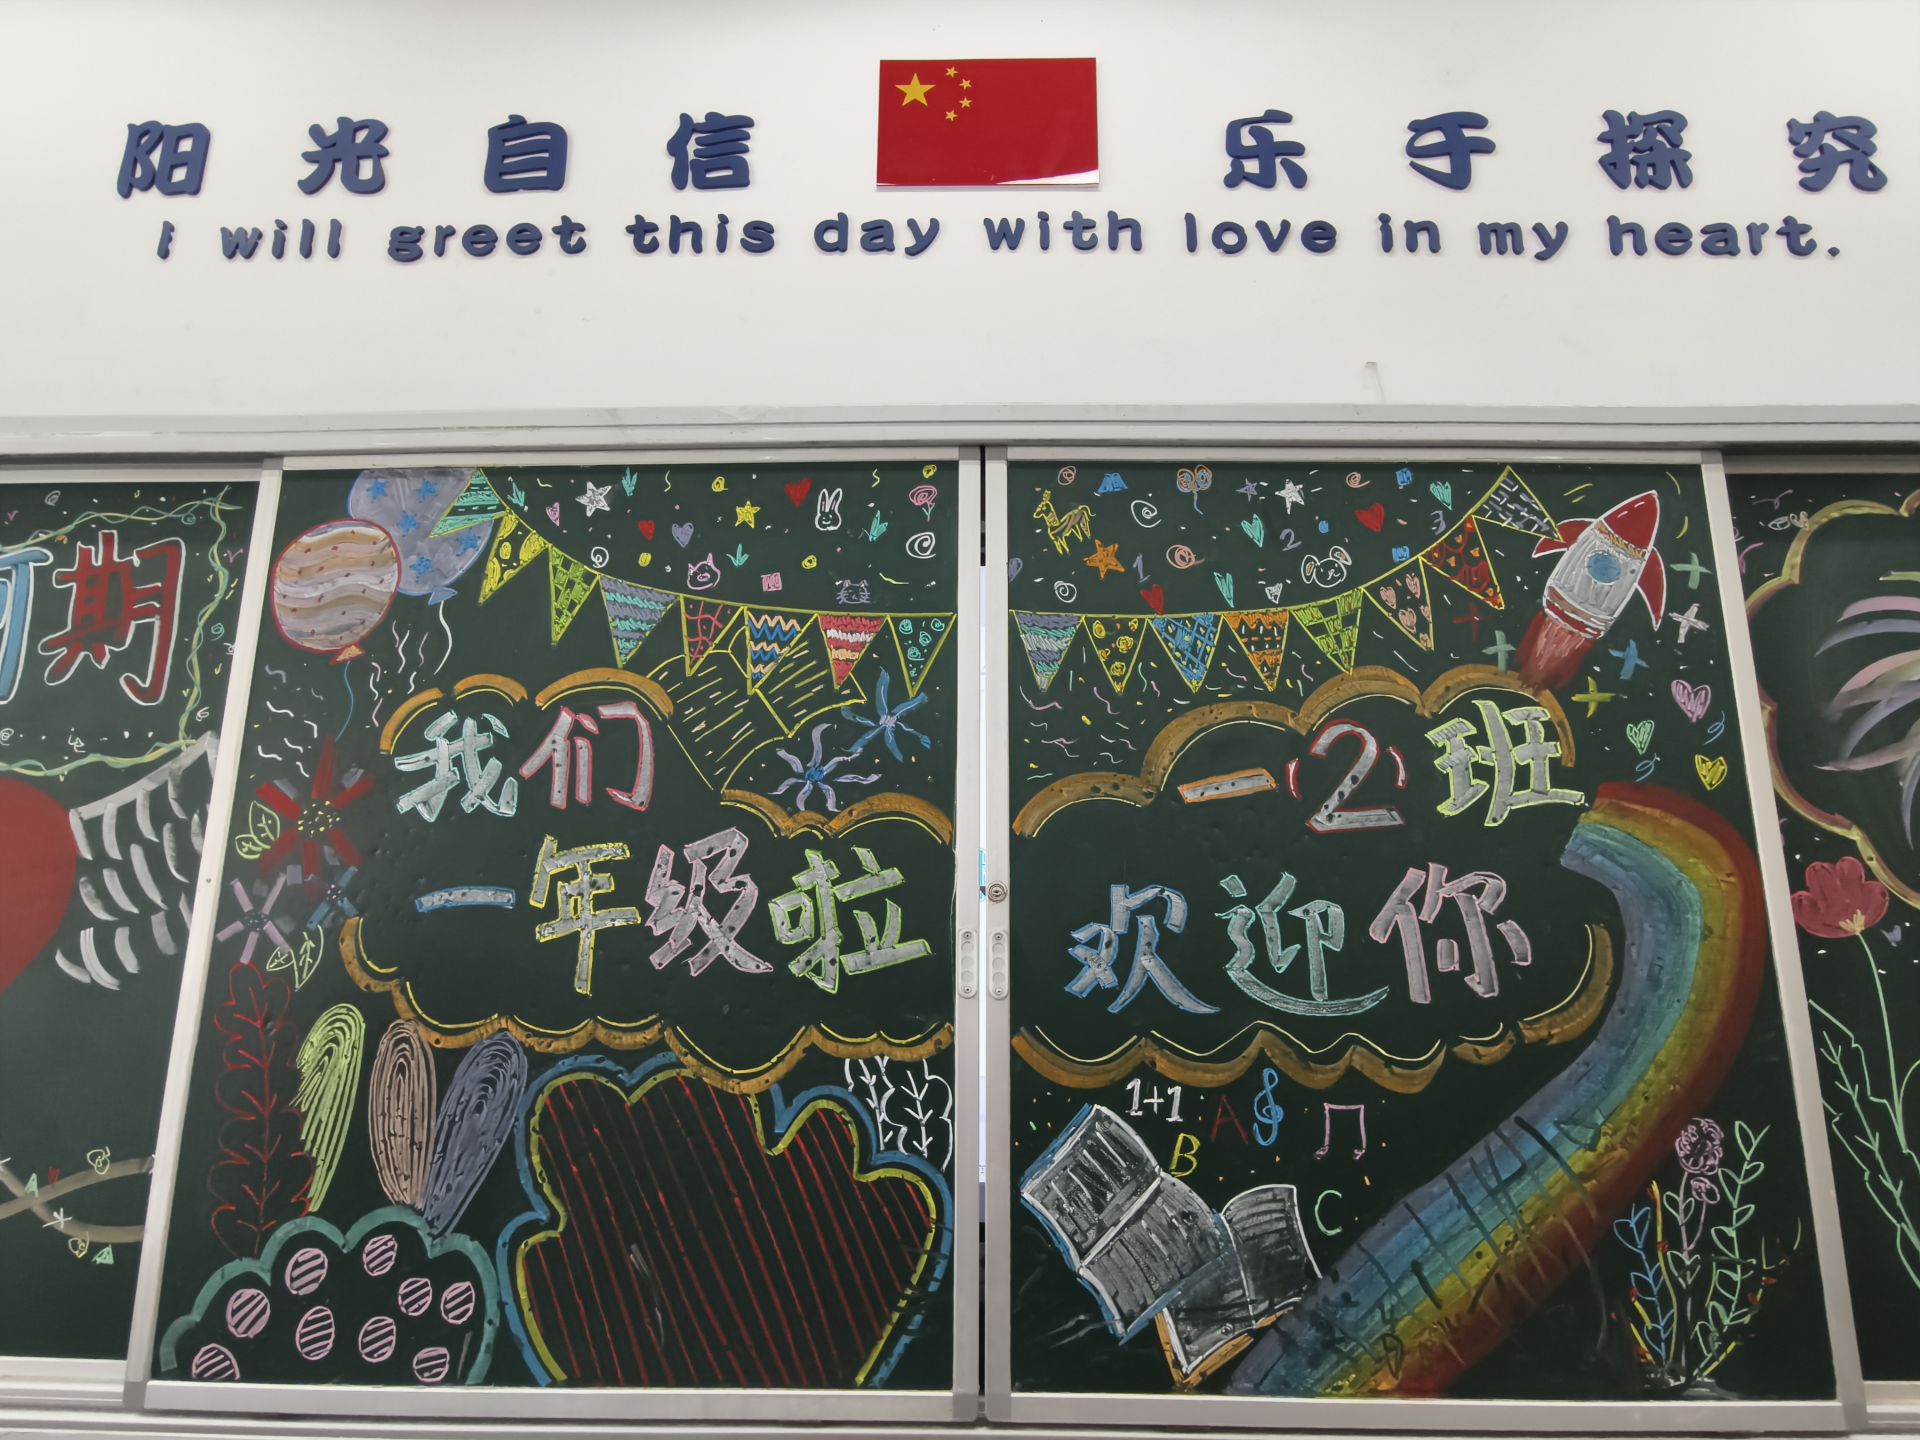 阳光自信 乐于探究
I will greet this day with love in my heart.
期
我们
一年级啦
一2班
欢迎你
1 2 3
1+1 A
B
C